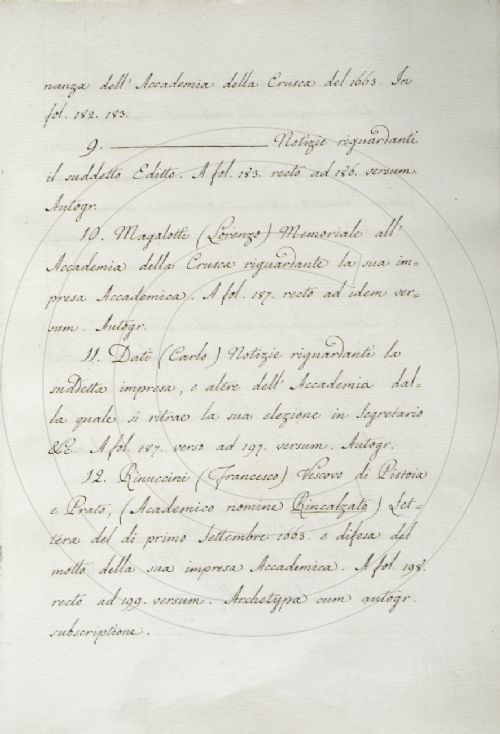 nanza dell' Accademia della Crusca del 1663. In
fol. 182. 183.
9. ——————— Notizie riguardanti
il suddetto Editto. A fol. 183. recto ad 186. versum.
Autogr.
10. Magalotti (Lorenzo) Memoriale all'
Accademia della Crusca riguardante la sua im=
presa Accademica. A fol. 187. recto ad idem ver=
sum. Autogr.
11. Dati (Carlo) Notizie riguardanti la
suddetta impresa, e altre dell' Accademia dal=
la quale si ritrae la sua elezione in Segretario
&c. A fol. 187. verso ad 197. versum. Autogr.
12. Rinuccini (Francesco) Vescovo di Pistoia
e Prato, (Academico nomine Rincalzato) Let=
tera del dì primo Settembre 1663. e difesa del
motto della sua impresa Accademica. A fol. 198.
recto ad 199. versum. Archetypa cum autogr.
subscriptione.